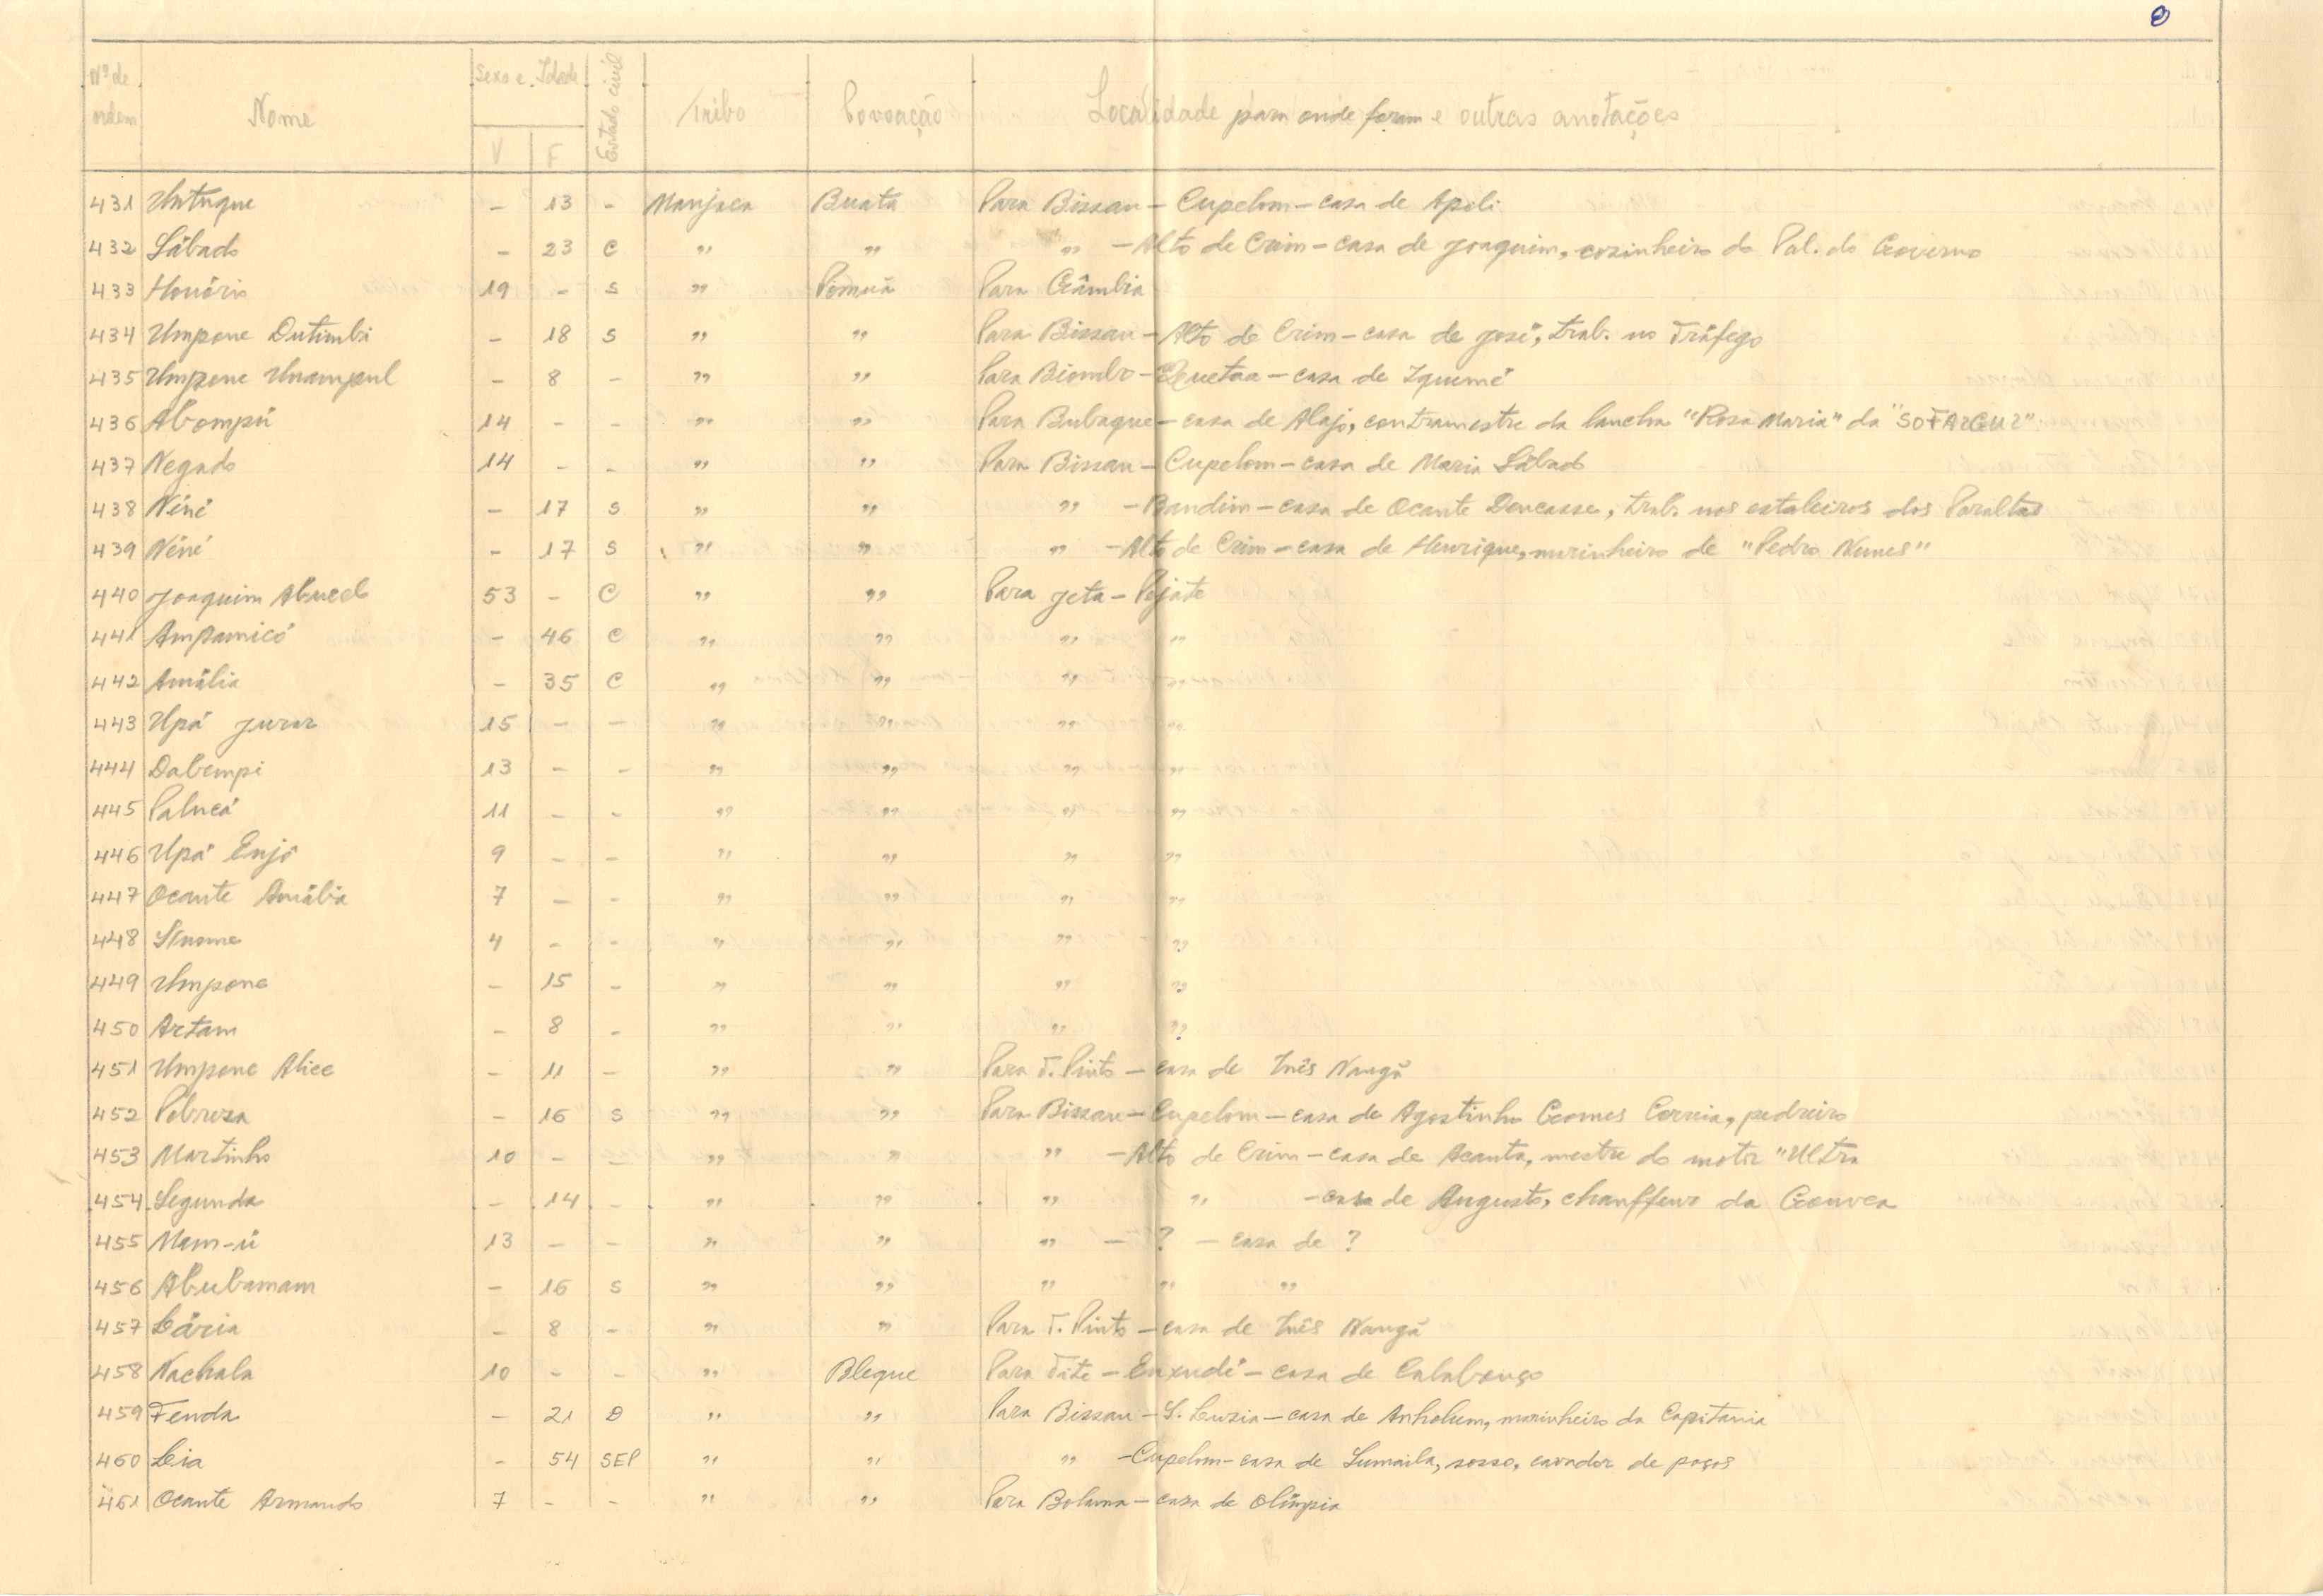 8
Nº de ordem Nome Sexo e Idade V F Estado civil Tribo Povoação Localidade para onde foram e outras anotações
431 Untuque - 13 - Manjaca Buata Para Bissau - Cupelom - casa de Apoli
432 Sábado - 23 C " " " - Alto de Crim - casa de Joaquim, cozinheiro do Pal. do Governo
433 Honório 19 - S " Pomuá Para Gâmbia
434 Umpone Dutimbi - 18 S " " Para Bissau - Alto de Crim - casa de José, trab. no Tráfego
435 Umpone Unampul - 8 - " " Para Biombo - casa de Iquemé
436 Abompú 14 - - " " Para Bubaque - casa de Alajo, contramestre da lancha "Rosa Maria" da "SOFARGUR"
437 Negado 14 - - " " Para Bissau - Cupelom - casa de Maria Sábado
438 Néné - 17 S " " " - Bandim - casa de Ocante Doucasse, trab. nos estaleiros dos Paraltas
439 Néné - 17 S " " " - Alto de Crim - casa de Henrique, marinheiro de "Pedro Nunes"
440 Joaquim 53 - C " " Para Jeta - Pejate
441 Ampamicó - 46 C " " " "
442 Amália - 35 C " " " "
443 Upá Jurur 15 - - " " " "
444 Dabempi 13 - - " " " "
445 Palucá 11 - - " " " "
446 Upá Enjó 9 - - " " " "
447 Ocante Amália 7 - - " " " "
448 4 - - " " " "
449 Umpone - 15 - " " " "
450 Artam - 8 - " " " "
451 Umpone Alice - 11 - " " Para T. Pinto - casa de Inês Nangã
452 Pobreza - 16 S " " Para Bissau - Cupelom - casa de Agostinho Gomes Correia, pedreiro
453 Martinho 10 - - " " " - Alto de Crim - casa de Acanta, mestre do motor "Ultra
454 Segunda - 14 - " " " " - casa de Augusto, chauffeur da Gouvea
455 Mam-ú 13 - - " " " - ? - casa de ?
456 Abubamam - 16 S " " " " "
457 Cária - 8 - " " Para T. Pinto - casa de Inês Nangã
458 Nachala 10 - - " Bleque Para Tite - Enxudé - casa de Calabouço
459 Fenda - 21 D " " Para Bissau - S. Luzia - casa de Anholum, marinheiro da Capitania
460 Lia - 54 SEP " " " - Cupelom - casa de Sumaila, sosso, cavador de poços
461 Ocante Armando 7 - - " " Para Bolama - casa de Olímpia